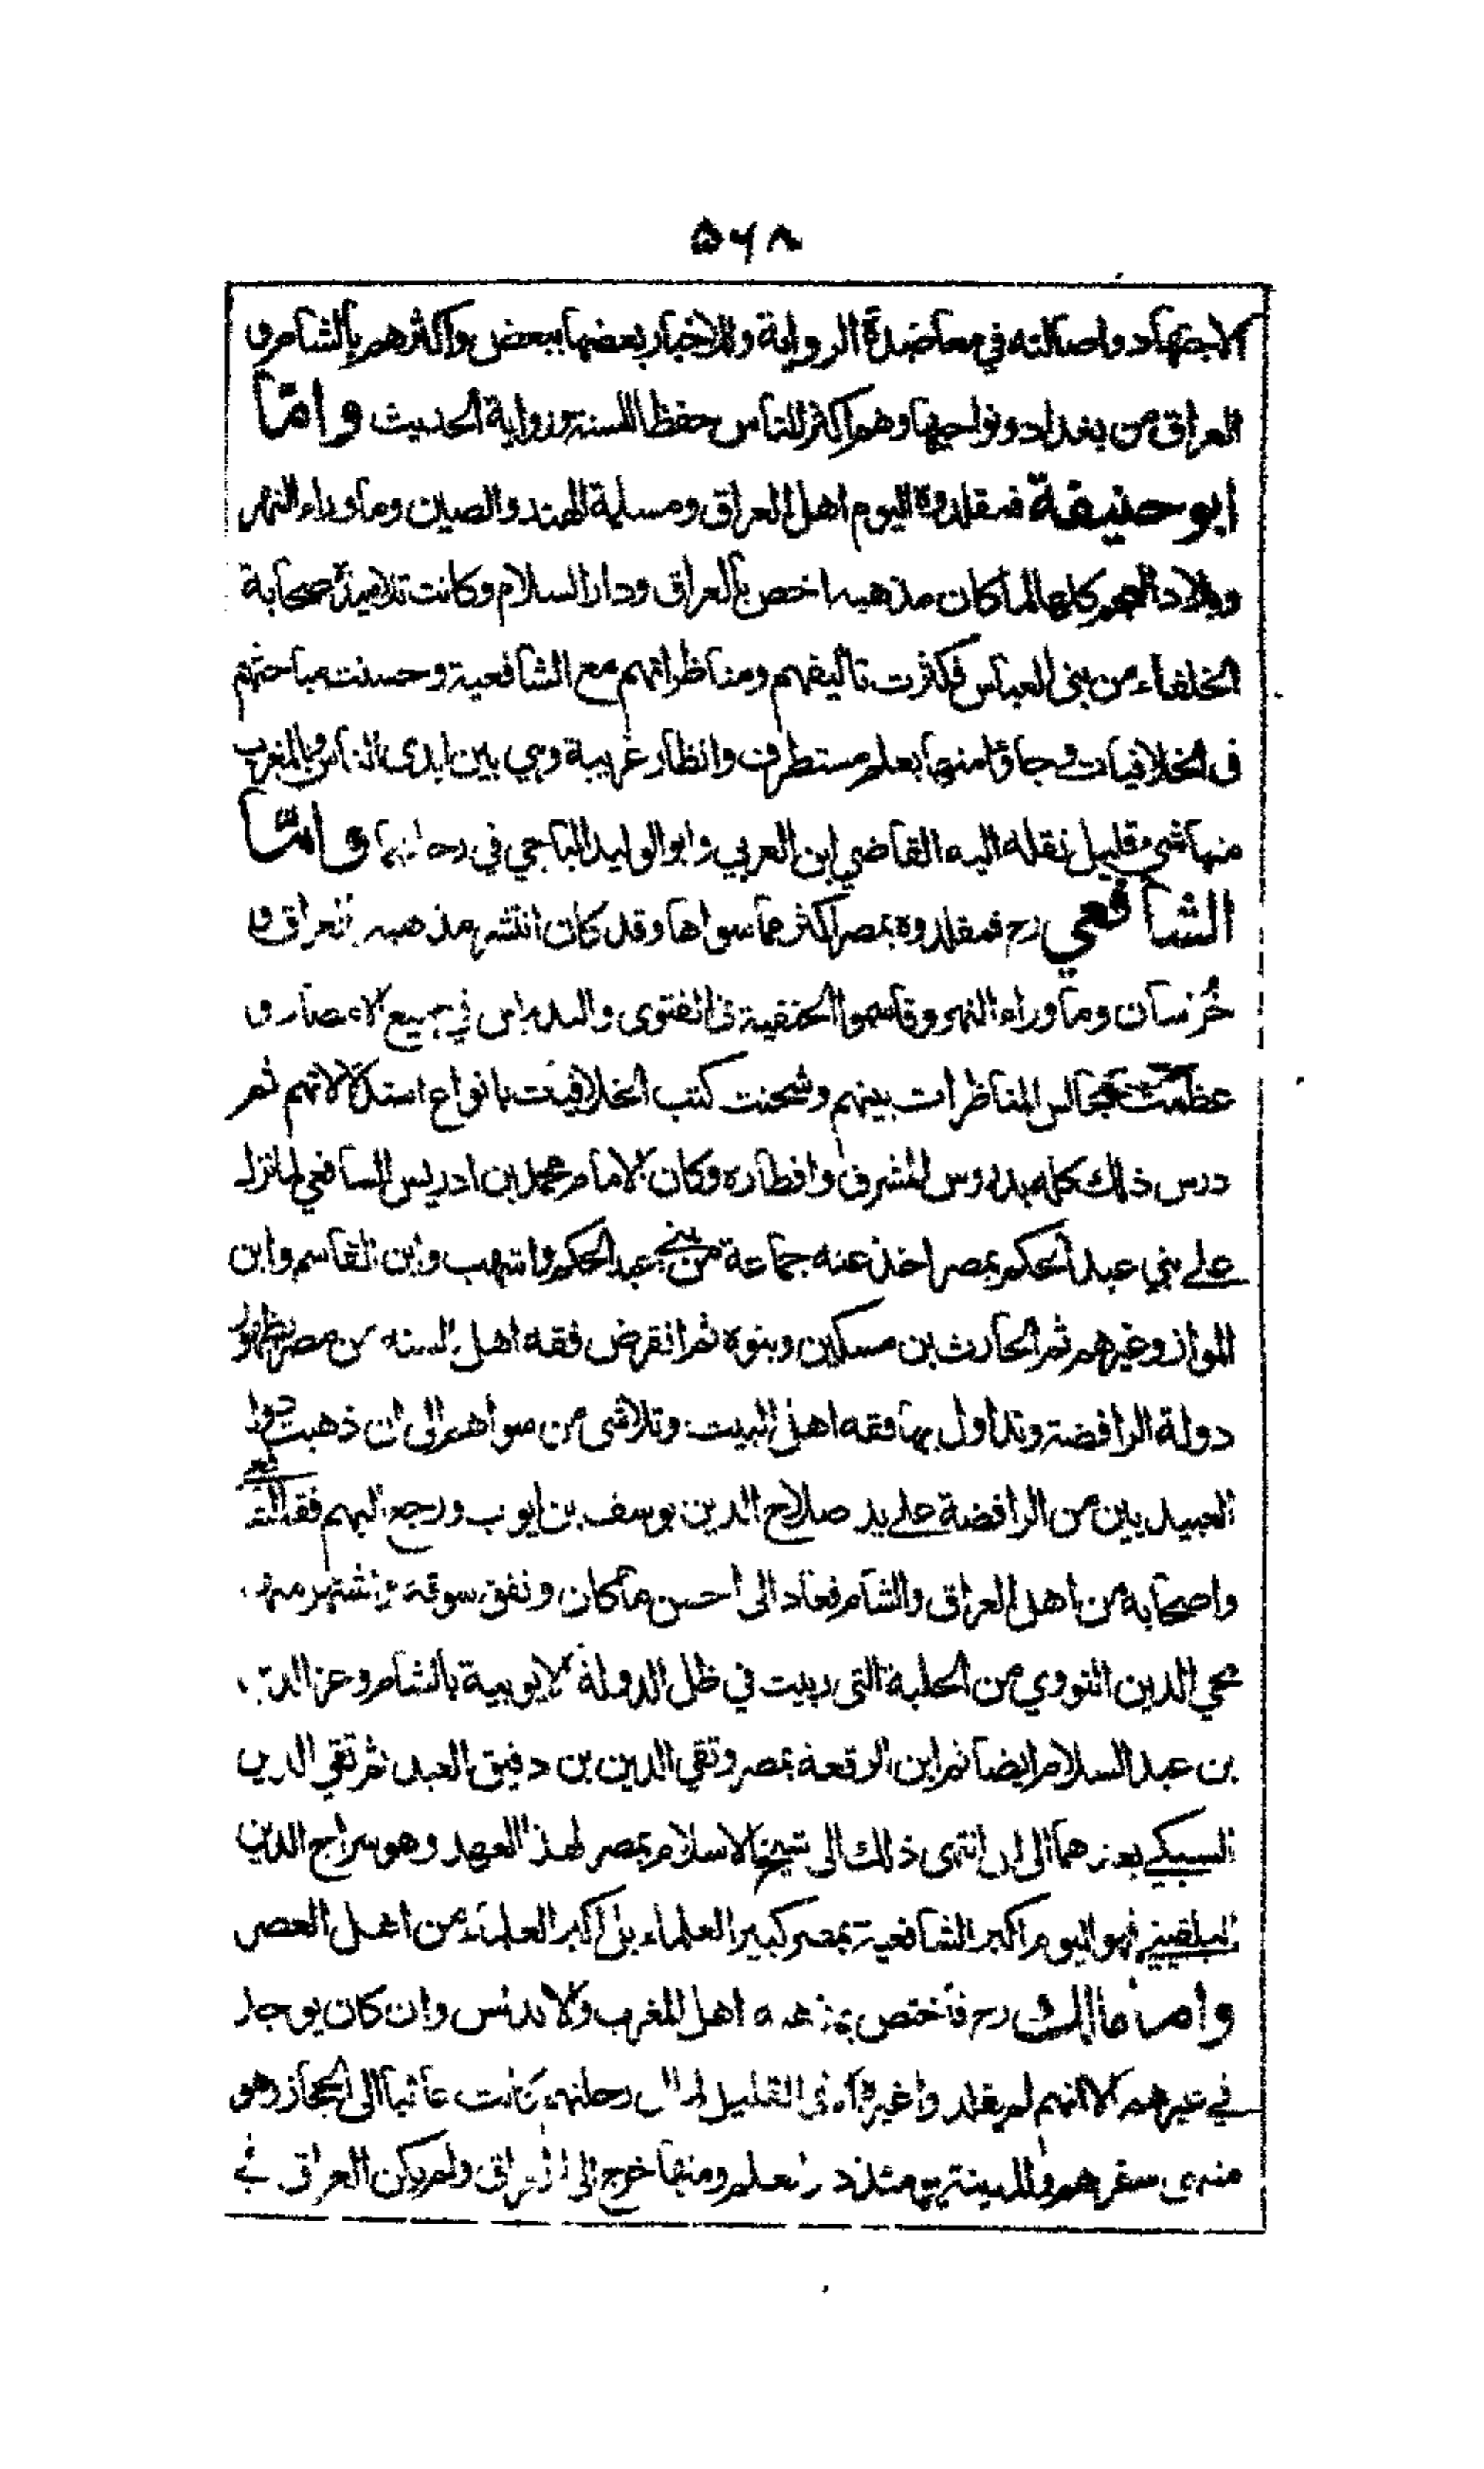 ۵۶۸
الاجتهاد واصالته في معاضدة الرواية وللاخبار بعضها ببعض واكثرهم بالشام و
العراق من بغداد ونواحيها وهم اكثر الناس حفظا للسنة ورواية الحديث واما
ابو حنيفة فمقلدوه اليوم اهل العراق ومسلمة الهند والصين وما وراء النهر
وبلاد العجم كلها لما كان مذهبه اخص بالعراق ودار السلام وكانت تلاميذه صحابة
الخلفاء من بني العباس فكثرت تاليفهم ومناظراتهم مع الشافعية وحسنت مباحثهم
في الخلافيات وجاؤا منها بعلم مستطرف وانظار غريبة وهي بين ايدى الناس وبالمغرب
منها شئ قليل نقله اليه القاضي ابن العربي وابو الوليد الباجي في رحلتهما واما
الشافعي رح فمقلدوه بمصر اكثر مما سواها وقد كان انتشر مذهبه بالعراق و
خرسان وما وراء النهر وقاسموا الحنفية في الفتوى والتدريس في جميع الامصار و
عظمت مجالس المناظرات بينهم وشحنت كتب الخلافيات بانواع استدلالاتهم ثم
درس ذلك كله بدروس المشرق واقطاره وكان الامام محمد بن ادريس الشافعي لما نزل
على بني عبد الحكم بمصر اخذ عنه جماعة من بني عبد الحكم واشهب وابن القاسم وابن
المواز وغيرهم ثم الحارث بن مسكين وبنوه ثم انقرض فقه اهل السنه من مصر بظهور
دولة الرافضة وتداول بها فقه اهل البيت وتلاشى من سواهم الى ان ذهبت دولة
العبيديين من الرافضة على يد صلاح الدين يوسف بن ايوب ورجع اليهم فقه الشافعي
واصحابه من اهل العراق والشام فعاد الى احسن ما كان ونفق سوقه واشتهر منهم
محي الدين النووي من الحلبة التى ربيت في ظل الدولة الايوبية بالشام وعز الدين
بن عبد السلام ايضا ثم ابن الرقعة بمصر وتقي الدين بن دقيق العبد ثم تقي الدين
السبكي بعدهما الى ان انتهى ذلك الى شيخ الاسلام بمصر لهذا العهد وهو سراج الدين
البلقيني فهو اليوم اكبر الشافعية بمصر كبير العلماء بل اكبر العلماء من اهل العصر
واما مالك رح فاختص بمذهبه اهل المغرب والاندلس وان كان يوجد
في غيرهم الا انهم لم يقلدوا غيره الا في القليل لما ان رحلتهم كانت غالبا الى الحجاز وهو
منتهى سفرهم والمدينة يومئذ دار العلم ومنها خرج الى العراق ولم يكن العراق في